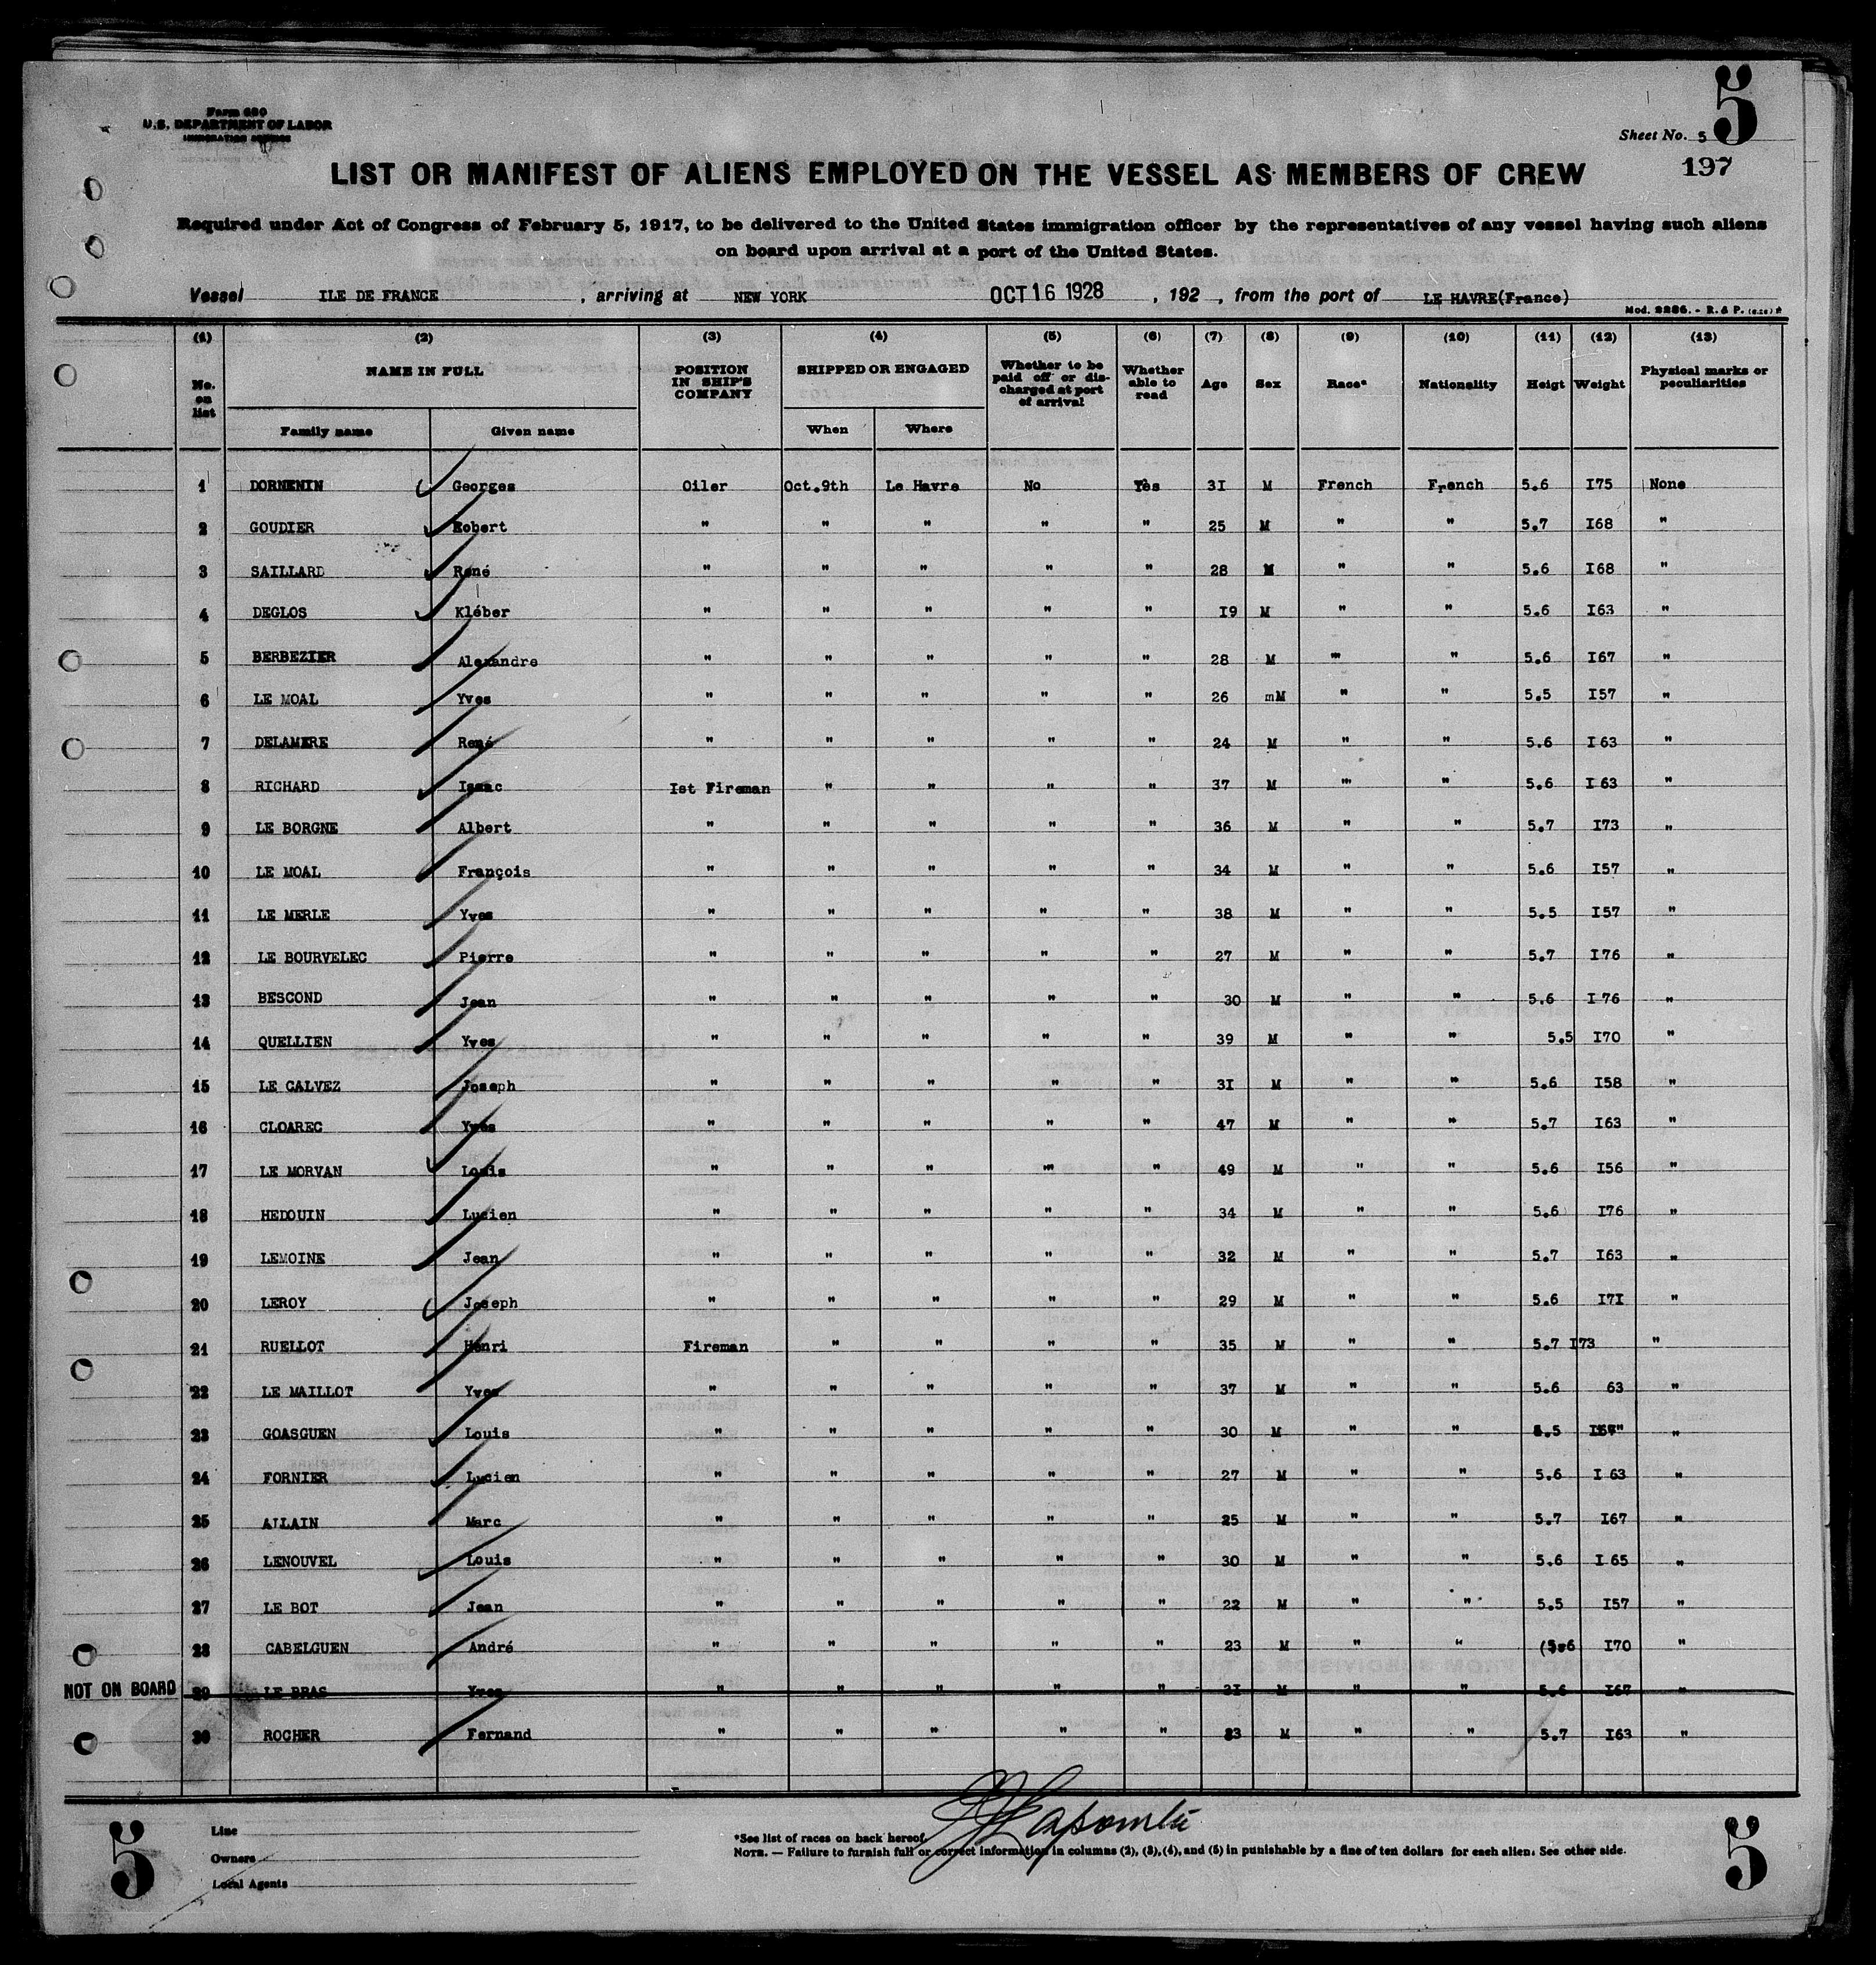 Form 680
U.S. DEPARTMENT OF LABOR
IMMIGRATION SERVICE
5
Sheet No. 5
197
LIST OR MANIFEST OF ALIENS EMPLOYED ON THE VESSEL AS MEMBERS OF CREW
Required under Act of Congress of February 5, 1917, to be delivered to the United States immigration officer by the representatives of any vessel having such aliens
on board upon arrival at a port of the United States.
Vessel ILE DE FRANCE , arriving at NEW YORK OCT 16 1928 , 192 , from the port of LE HAVRE(France)
Mod. 2286. - R. & P.
(1) (2) (3) (4) (5) (6) (7) (8) (9) (10) (11) (12) (13)
No. on list NAME IN FULL POSITION IN SHIP'S COMPANY SHIPPED OR ENGAGED Whether to be paid off or discharged at port of arrival Whether able to read Age Sex Race* Nationality Heigt Weight Physical marks or peculiarities
Family name Given name When Where
1 DORNENIN Georges Oiler Oct.9th Le Havre No Yes 3I M French French 5.6 I75 None
2 GOUDIER Robert " " " " " 25 M " " 5.7 I68 "
3 SAILLARD René " " " " " 28 M " " 5.6 I68 "
4 DEGLOS Kléber " " " " " I9 M " " 5.6 I63 "
5 BERBEZIER Alexandre " " " " " 28 M " " 5.6 I67 "
6 LE MOAL Yves " " " " " 26 mM " " 5.5 I57 "
7 DELAMERE René " " " " " 24 M " " 5.6 I63 "
8 RICHARD Isaac Ist Fireman " " " " 37 M " " 5.6 I63 "
9 LE BORGNE Albert " " " " " 36 M " " 5.7 I73 "
10 LE MOAL François " " " " " 34 M " " 5.6 I57 "
11 LE MERLE Yves " " " " " 38 M " " 5.5 I57 "
12 LE BOURVELEC Pierre " " " " " 27 M " " 5.7 I76 "
13 BESCOND Jean " " " " " 30 M " " 5.6 I76 "
14 QUELLIEN Yves " " " " " 39 M " " 5.5 I70 "
15 LE CALVEZ Joseph " " " " " 3I M " " 5.6 I58 "
16 CLOAREC Yves " " " " " 47 M " " 5.7 I63 "
17 LE MORVAN Louis " " " " " 49 M " " 5.6 I56 "
18 HEDOUIN Lucien " " " " " 34 M " " 5.6 I76 "
19 LEMOINE Jean " " " " " 32 M " " 5.7 I63 "
20 LEROY Joseph " " " " " 29 M " " 5.6 I7I "
21 RUELLOT Henri Fireman " " " " 35 M " " 5.7 I73 "
22 LE MAILLOT Yves " " " " " 37 M " " 5.6 63 "
23 GOASGUEN Louis " " " " " 30 M " " 5.5 "
24 FORNIER Lucien " " " " " 27 M " " 5.6 I 63 "
25 ALLAIN Marc " " " " " 25 M " " 5.7 I67 "
26 LENOUVEL Louis " " " " " 30 M " " 5.6 I 65 "
27 LE BOT Jean " " " " " 22 M " " 5.5 I57 "
28 CABELGUEN André " " " " " 23 M " " (5.6 I70 "
NOT ON BOARD 29 LE BRAS Yves " " " " " 3I M " " 5.6 I67 "
30 ROCHER Fernand " " " " " M " " 5.7 I63 "
5
Line
Owners
Local Agents
*See list of races on back hereof.
NOTE. — Failure to furnish full or correct information in columns (2), (3), (4), and (5) in punishable by a fine of ten dollars for each alien. See other side.
5